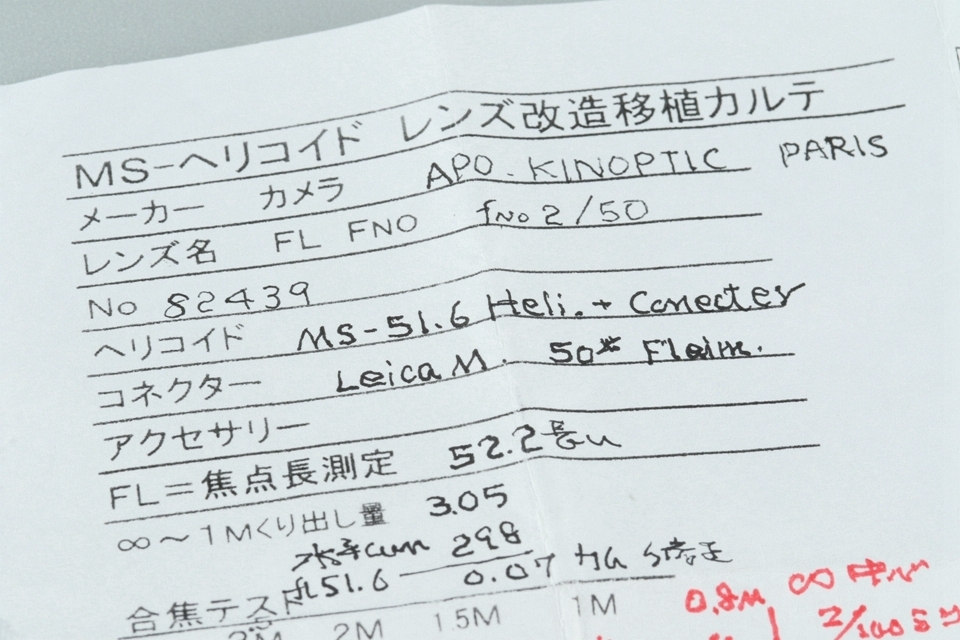 MS-ヘリコイド レンズ改造移植カルテ
メーカー カメラ APO. KINOPTIC PARIS
レンズ名 FL FNO fNo 2/50
No 82439
ヘリコイド MS-51.6 Heli. + Conecter
コネクター Leica M. 50
アクセサリー
FL=焦点長測定 52.2 長い
∞~1Mくり出し量 3.05
298
51.6 0.07 カム修正
合焦テスト
2M 1.5M 1M 0.8M ∞